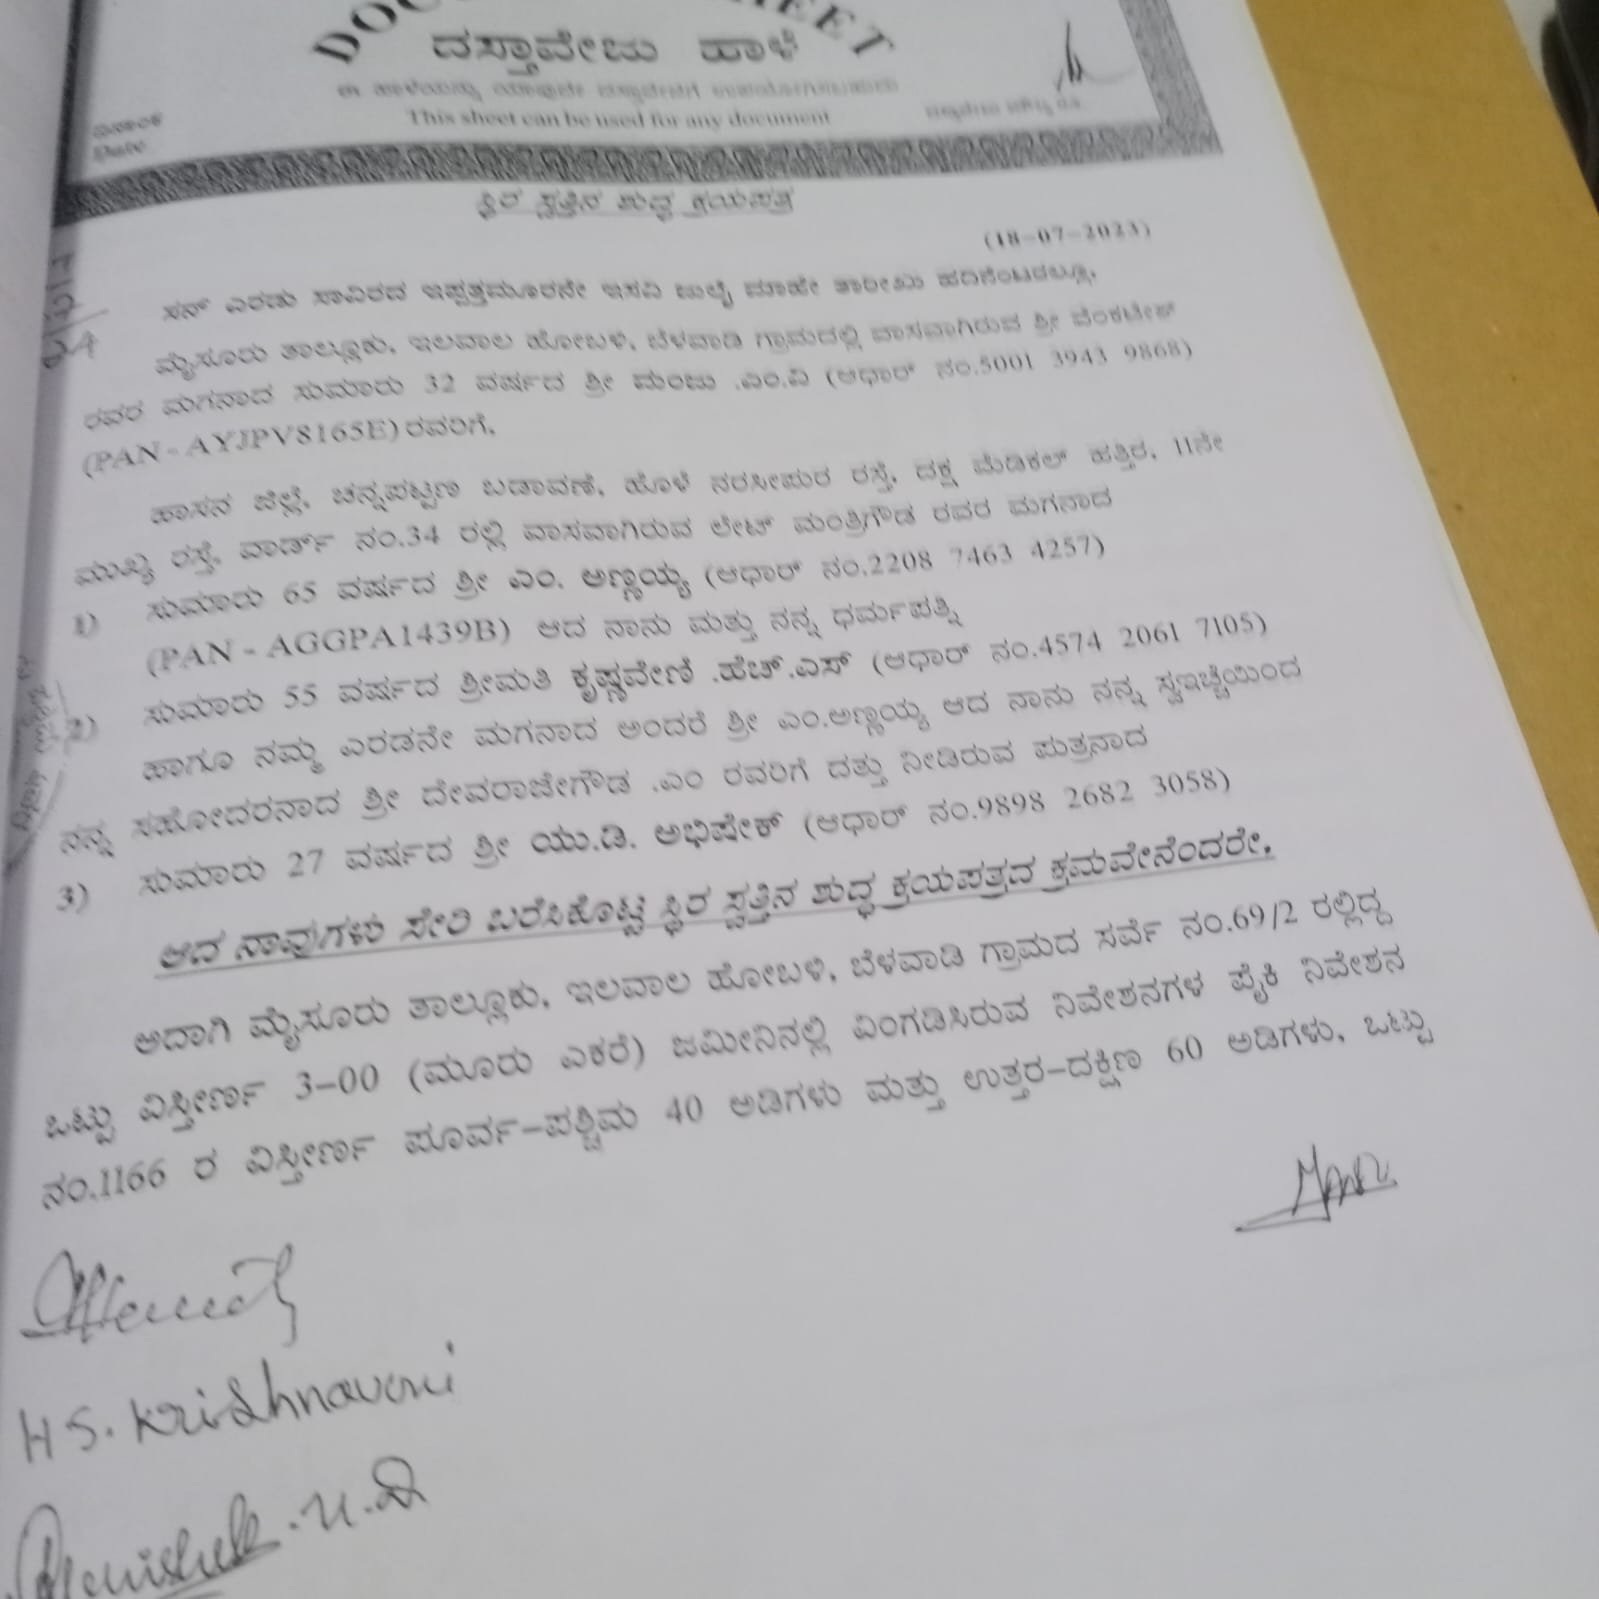 ದಸ್ತಾವೇಜು ಹಾಳೆ
This sheet can be used for any document
ದಿನಾಂಕ
Date
ಸ್ಥಿರ ಸ್ವತ್ತಿನ ಶುದ್ಧ ಕ್ರಯಪತ್ರ
(18-07-2023)
ಸನ್ ಎರಡು ಸಾವಿರದ ಇಪ್ಪತ್ತಮೂರನೇ ಇಸವಿ ಜುಲೈ ಮಾಹೇ ತಾರೀಖು ಹದಿನೆಂಟರಲ್ಲೂ,
ಮೈಸೂರು ತಾಲ್ಲೂಕು, ಇಲವಾಲ ಹೋಬಳಿ, ಬೆಳವಾಡಿ ಗ್ರಾಮದಲ್ಲಿ ವಾಸವಾಗಿರುವ ಶ್ರೀ ವೆಂಕಟೇಶ್
ರವರ ಮಗನಾದ ಸುಮಾರು 32 ವರ್ಷದ ಶ್ರೀ ಮಂಜು .ಎಂ.ವಿ (ಆಧಾರ್ ನಂ.5001 3943 9868)
(PAN - AYJPV8165E) ರವರಿಗೆ,
ಹಾಸನ ಜಿಲ್ಲೆ, ಚನ್ನಪಟ್ಟಣ ಬಡಾವಣೆ, ಹೊಳೆ ನರಸೀಪುರ ರಸ್ತೆ, ದಕ್ಷ ಮೆಡಿಕಲ್ ಹತ್ತಿರ, 11ನೇ
ಮುಖ್ಯ ರಸ್ತೆ, ವಾರ್ಡ್ ನಂ.34 ರಲ್ಲಿ ವಾಸವಾಗಿರುವ ಲೇಟ್ ಮಂತ್ರಿಗೌಡ ರವರ ಮಗನಾದ
1) ಸುಮಾರು 65 ವರ್ಷದ ಶ್ರೀ ಎಂ. ಅಣ್ಣಯ್ಯ (ಆಧಾರ್ ನಂ.2208 7463 4257)
(PAN - AGGPA1439B) ಆದ ನಾನು ಮತ್ತು ನನ್ನ ಧರ್ಮಪತ್ನಿ
2) ಸುಮಾರು 55 ವರ್ಷದ ಶ್ರೀಮತಿ ಕೃಷ್ಣವೇಣಿ .ಹೆಚ್.ಎಸ್ (ಆಧಾರ್ ನಂ.4574 2061 7105)
ಹಾಗೂ ನಮ್ಮ ಎರಡನೇ ಮಗನಾದ ಅಂದರೆ ಶ್ರೀ ಎಂ.ಅಣ್ಣಯ್ಯ ಆದ ನಾನು ನನ್ನ ಸ್ವಇಚ್ಛೆಯಿಂದ
ನನ್ನ ಸಹೋದರನಾದ ಶ್ರೀ ದೇವರಾಜೇಗೌಡ .ಎಂ ರವರಿಗೆ ದತ್ತು ನೀಡಿರುವ ಪುತ್ರನಾದ
3) ಸುಮಾರು 27 ವರ್ಷದ ಶ್ರೀ ಯು.ಡಿ. ಅಭಿಷೇಕ್ (ಆಧಾರ್ ನಂ.9898 2682 3058)
ಆದ ನಾವುಗಳು ಸೇರಿ ಬರೆಸಿಕೊಟ್ಟ ಸ್ಥಿರ ಸ್ವತ್ತಿನ ಶುದ್ಧ ಕ್ರಯಪತ್ರದ ಕ್ರಮವೇನೆಂದರೇ,
ಅದಾಗಿ ಮೈಸೂರು ತಾಲ್ಲೂಕು, ಇಲವಾಲ ಹೋಬಳಿ, ಬೆಳವಾಡಿ ಗ್ರಾಮದ ಸರ್ವೆ ನಂ.69/2 ರಲ್ಲಿದ್ದ
ಒಟ್ಟು ವಿಸ್ತೀರ್ಣ 3-00 (ಮೂರು ಎಕರೆ) ಜಮೀನಿನಲ್ಲಿ ವಿಂಗಡಿಸಿರುವ ನಿವೇಶನಗಳ ಪೈಕಿ ನಿವೇಶನ
ನಂ.1166 ರ ವಿಸ್ತೀರ್ಣ ಪೂರ್ವ-ಪಶ್ಚಿಮ 40 ಅಡಿಗಳು ಮತ್ತು ಉತ್ತರ-ದಕ್ಷಿಣ 60 ಅಡಿಗಳು, ಒಟ್ಟು
H S. Krishnaveni
Abhishek. U.D